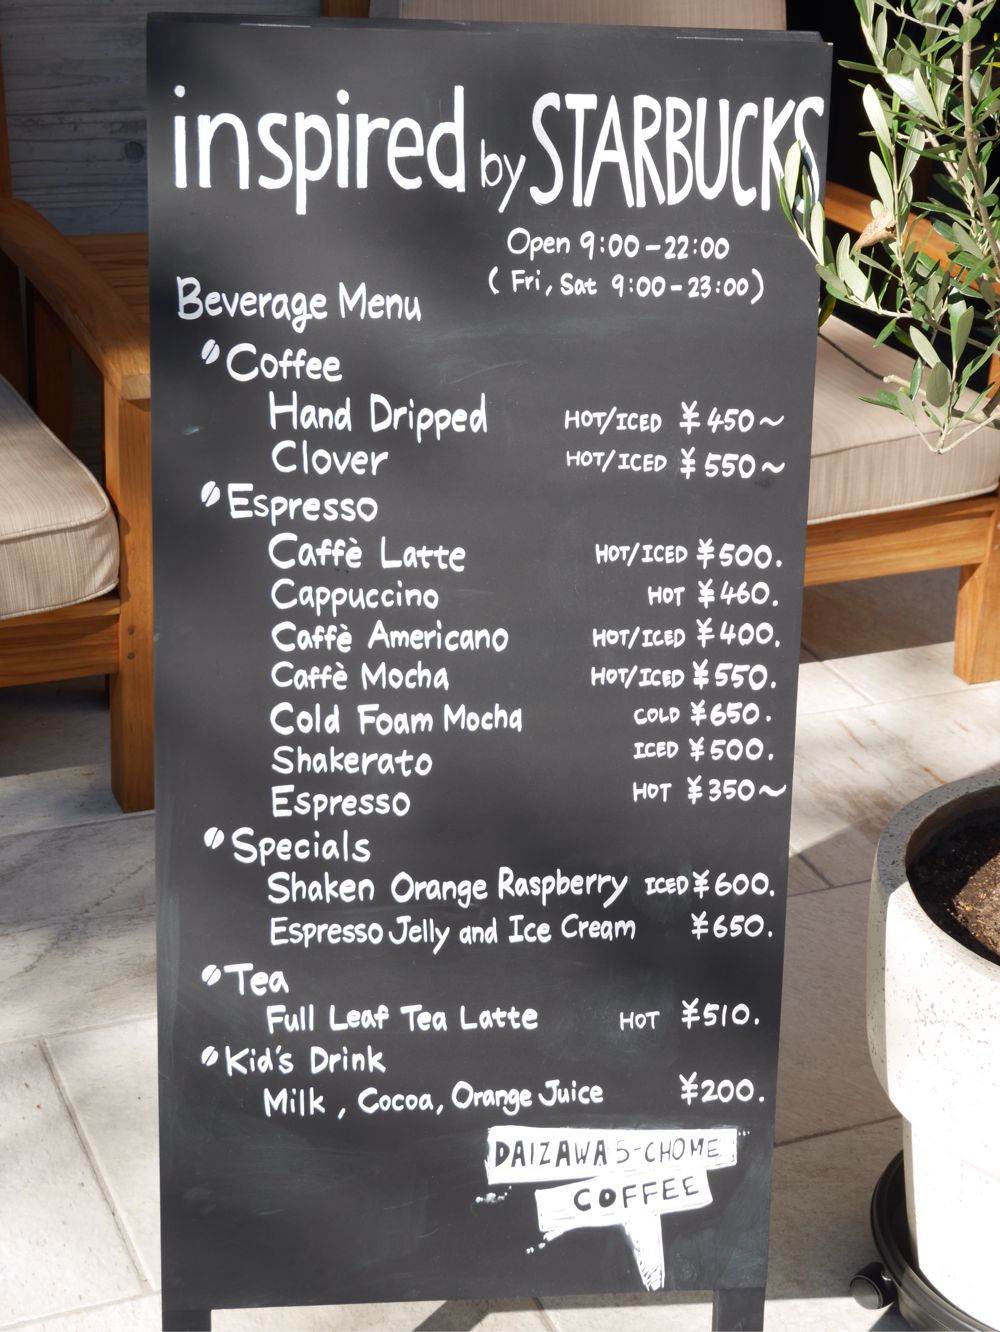 inspired by STARBUCKS
Open 9:00-22:00
( Fri, Sat 9:00-23:00 )
Beverage Menu
Coffee
Hand Dripped HOT/ICED ¥450~
Clover HOT/ICED ¥550~
Espresso
Caffè Latte HOT/ICED ¥500.
Cappuccino HOT ¥460.
Caffè Americano HOT/ICED ¥400.
Caffè Mocha HOT/ICED ¥550.
Cold Foam Mocha COLD ¥650.
Shakerato ICED ¥500.
Espresso HOT ¥350~
Specials
Shaken Orange Raspberry ICED ¥600.
Espresso Jelly and Ice Cream ¥650.
Tea
Full Leaf Tea Latte HOT ¥510.
Kid's Drink
Milk, Cocoa, Orange Juice ¥200.
DAIZAWA 5-CHOME
COFFEE